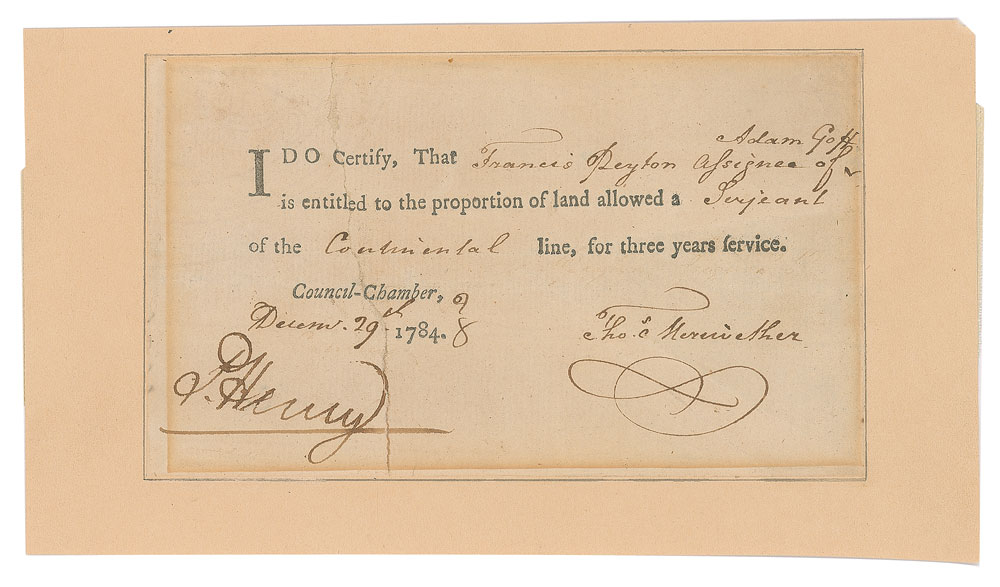 Adam Goff
I DO Certify, That Francis Peyton Assignee of
is entitled to the proportion of land allowed a Serjeant
of the Continental line, for three years ſervice.
Council-Chamber,
Decem. 29th 1784.
Thos. Merewether
P. Henry